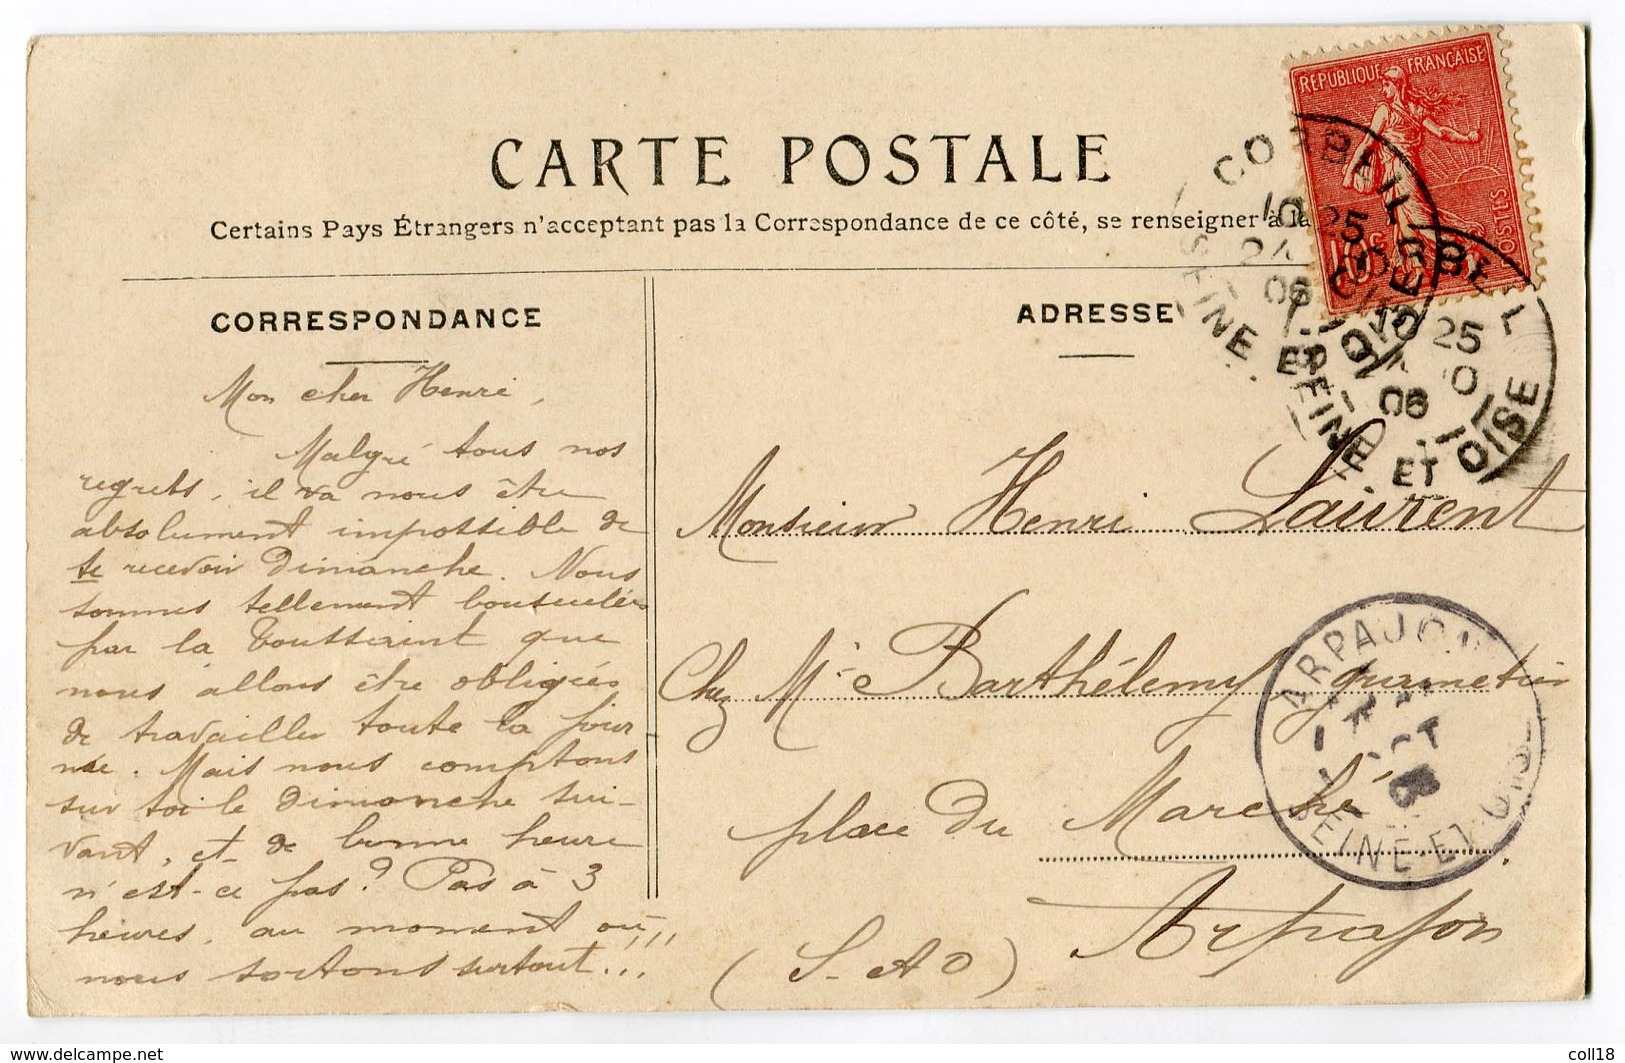 CARTE POSTALE
Certains Pays Étrangers n'acceptant pas la Correspondance de ce côté, se renseigner à la
CORRESPONDANCE
Mon cher Henri,
Malgré tous nos
regrets, il va nous être
absolument impossible de
te recevoir Dimanche. Nous
sommes tellement bousculés
par la Toussaint que
nous allons être obligés
de travailler toute la jour-
née. Mais nous comptons
sur toi le Dimanche sui-
vant, et de bonne heure
n'est-ce pas? Pas à 3
heures, au moment où
nous sortons surtout...!!!
ADRESSE
Monsieur Henri Laurent
Chez Mr Barthélemy grainetier
place du Marché
Arpajon
(S. et O)
REPUBLIQUE FRANÇAISE
POSTES
10c
CORBEIL
10 25
06
SEINE ET OISE
CORBEIL
10 25
06
SEINE ET OISE
ARPAJON
OCT
06
SEINE-ET-OISE
www.delcampe.net
coll18